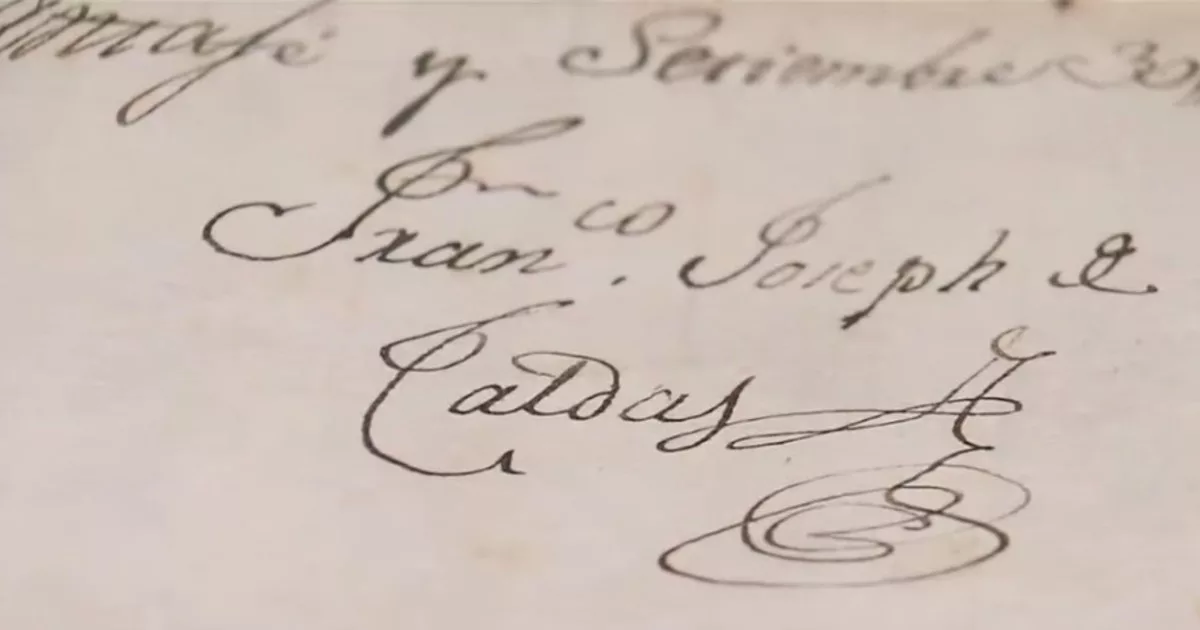 y Septiembre 30,
Fran.co Joseph de
Caldas